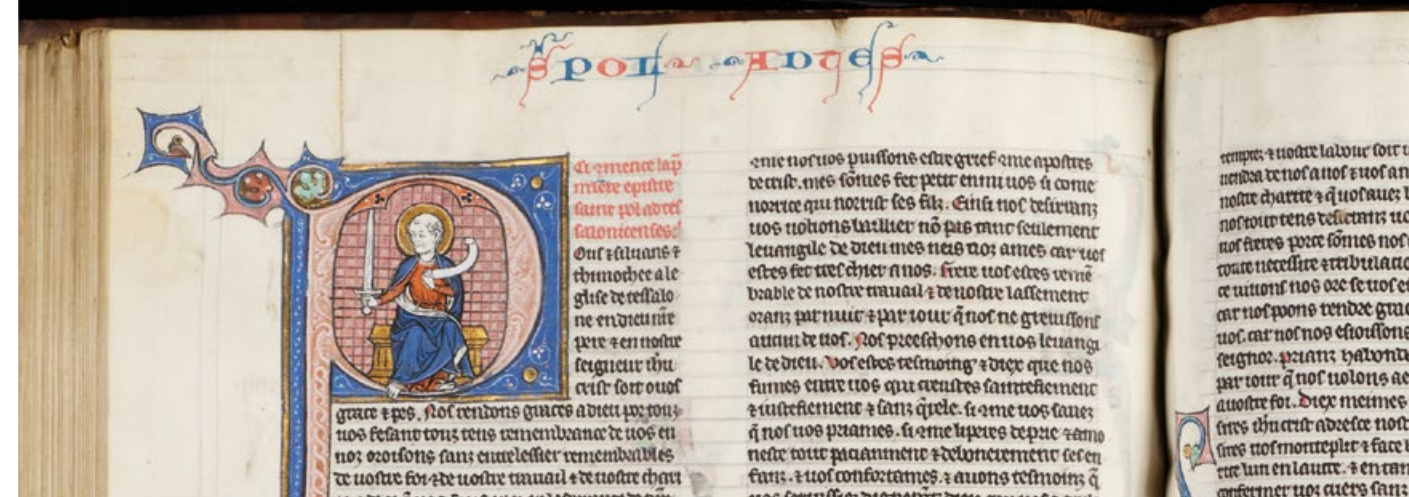 S POL AD TES
Ci cmence la p
miere epistre
saint pol ad tes
salonicenses.
Ous & siluans &
thimothee a le
glise de tessalo
ne en dieu nre
pere & en nostre
seigneur ihu
crist soit a uos
grace & pes. Nos rendons graces a dieu por touz
uos fesant touz tens remembrance de uos en
noz oroisons sanz entrelessier remembrables
de uostre foi & de uostre trauail & de uostre chari
cme nos uos puissons estre grief cme apostres
de crist. mes somes fet petit enmi uos si come
norrice qui norrist ses filz. Einsi nos desirranz
uos uolions baillier no pas tant seulement
leuangile de dieu mes neis noz ames car uos
estes fet tres chier a nos. frere uos estes reme
brable de nostre trauail & de nostre lassement
oranz par nuit & par iour q nos ne greuissons
aucun de uos. Nos preeschons en uos leuangi
le de dieu. Vos estes tesmoing & diex que nos
fumes entre uos qui creustes saintefiement
& iustefiement & sanz qrele. si cme uos sauez
q nos uos priames. si cme li peres deprie & amo
neste tout paciaument & debonerement ses en
fanz. & uos confortames. & auons tesmoinz q
temptez & uostre labour soit
uendra de nos a uos & uos an
nostre charite & q uos auez
nos touz tens desirranz
uos freres por ce somes nos
toute necessite & tribulacio
ce uiuons nos ore se uos
car nos poons rendre gra
uos. car nos nos esioissons
seignor. priant habond
par iour q nos uolons
a uostre foi. Diex meimes
sires ihu crist adresce nost
sires uos monteplit & face
rite lun en lautre. & en
confermer uoz cuers sanz